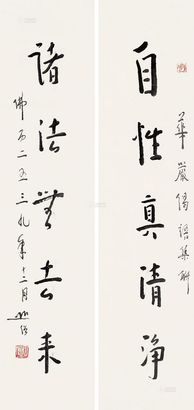 華嚴偈語集聯
自性真清淨
諸法無去来
佛历二五三九年十二月